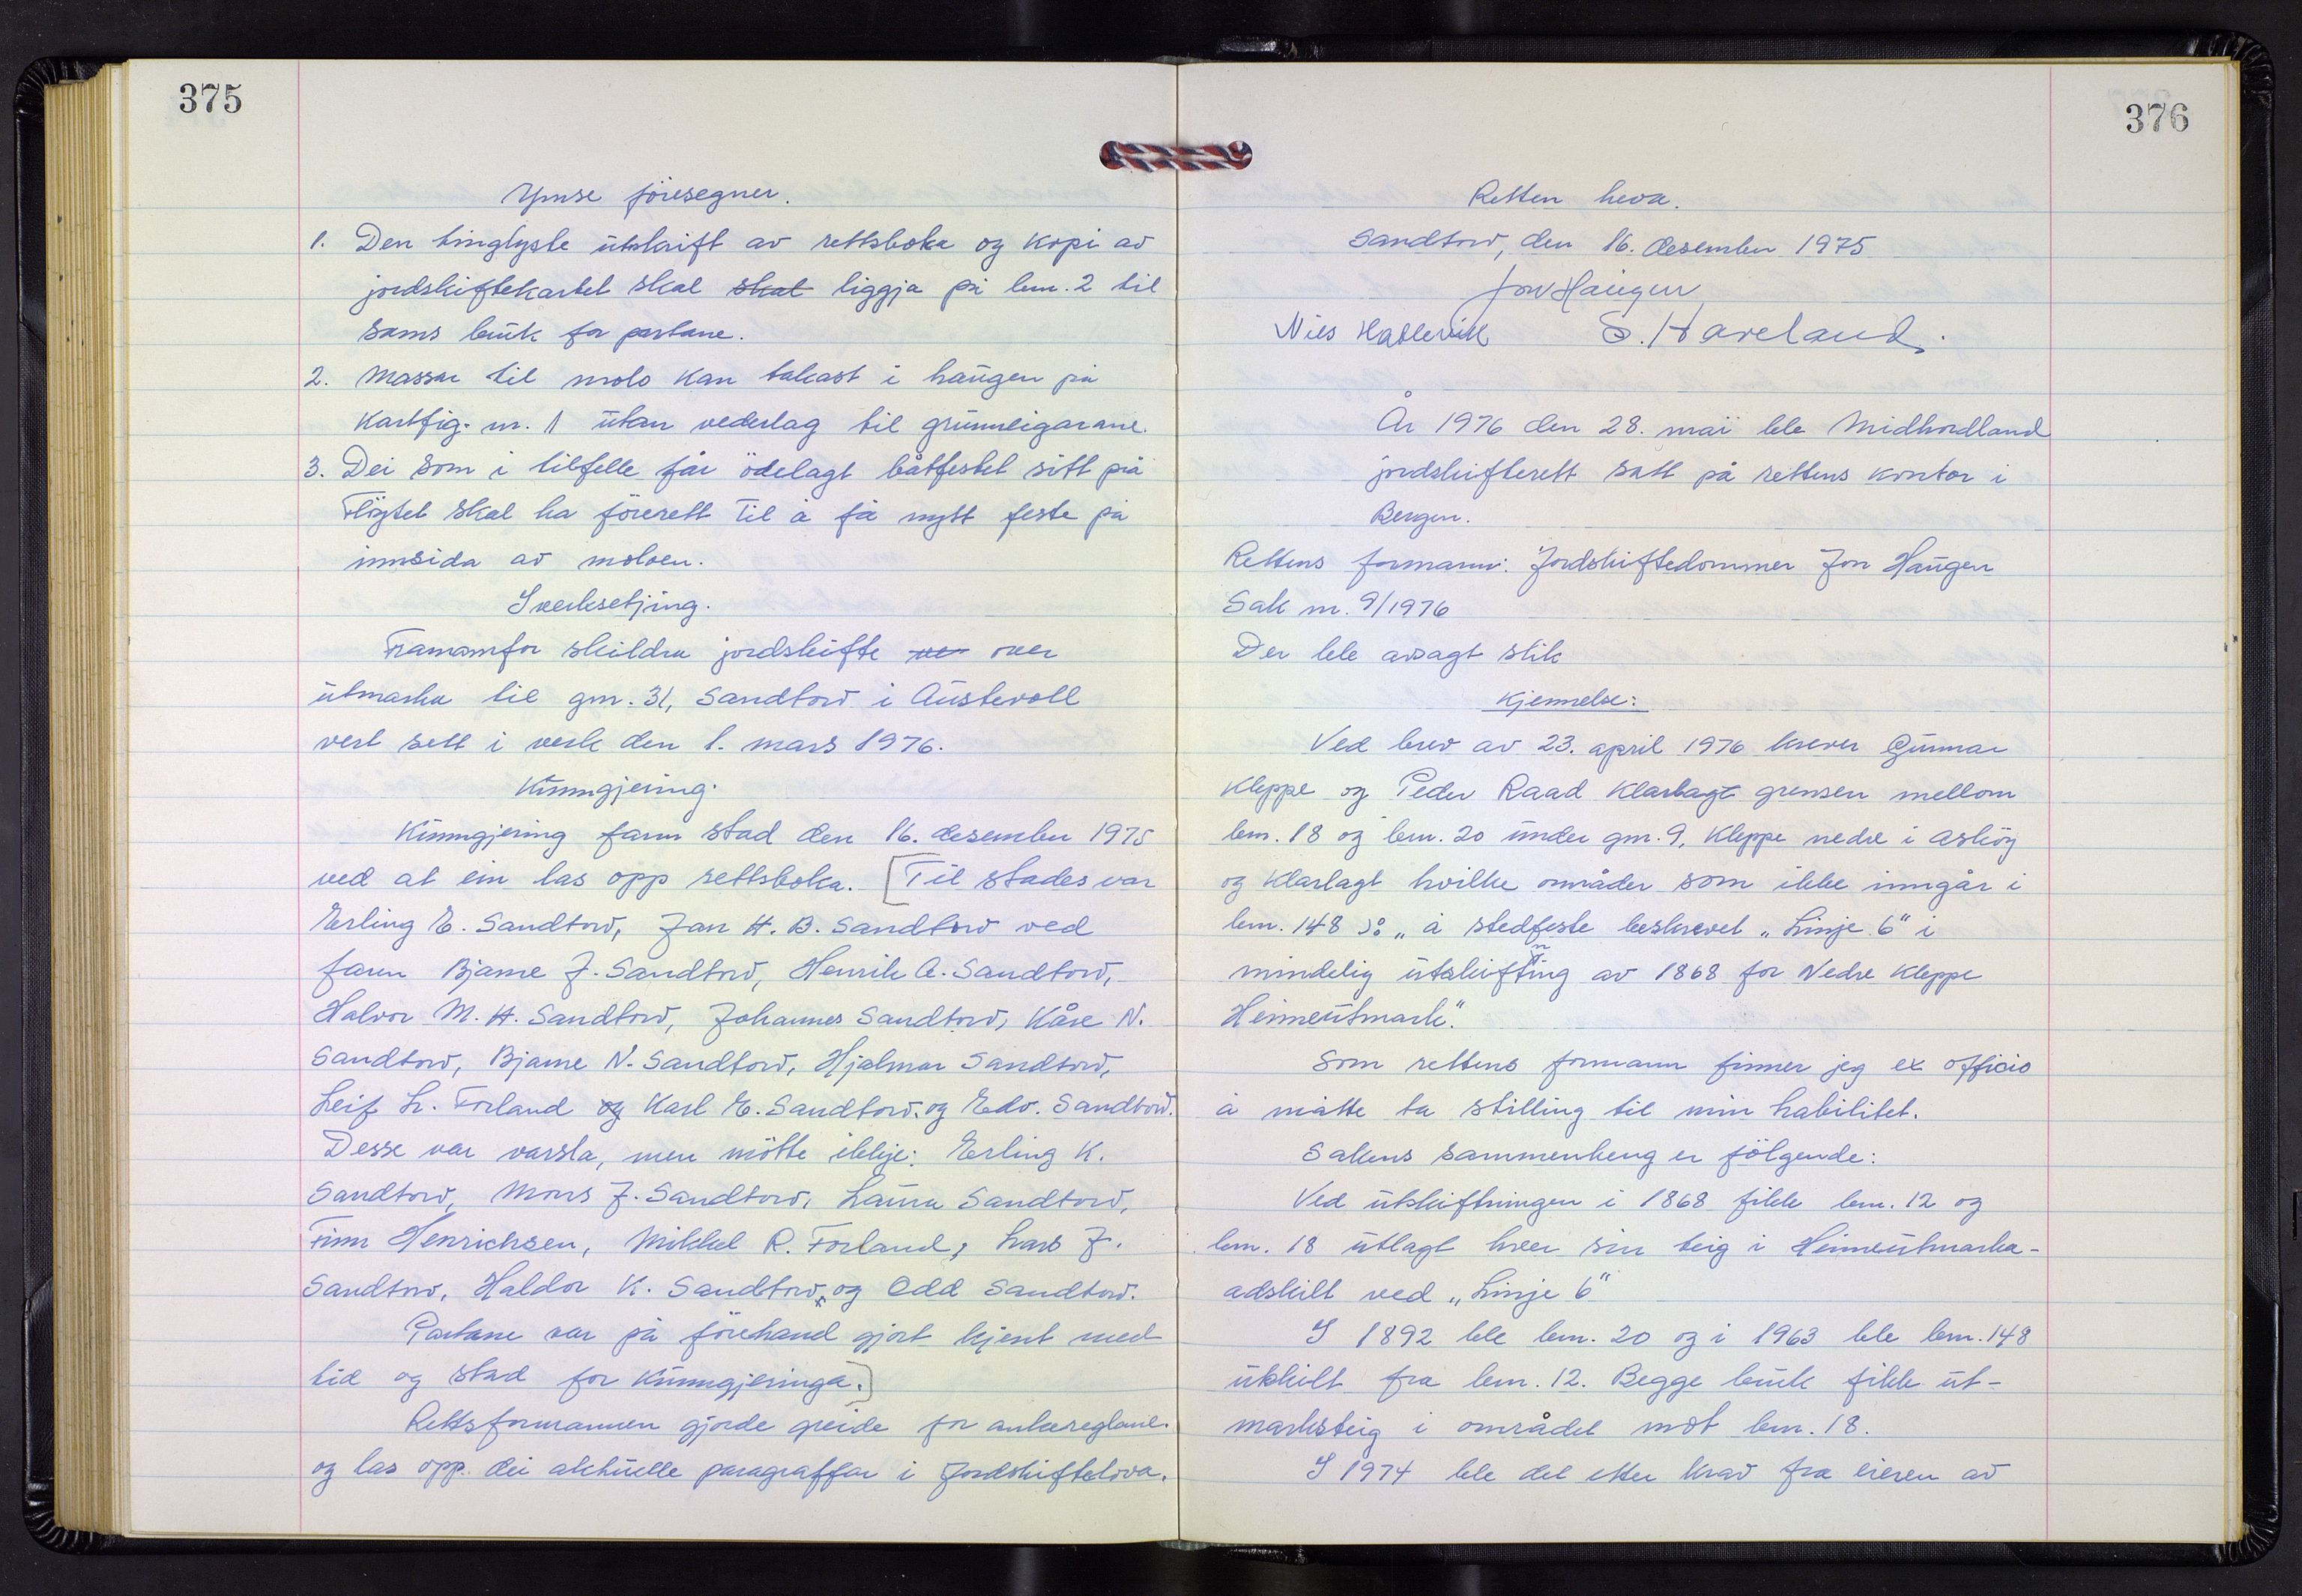 375
Ymse föresegner.
1. Den tinglyste utskrift av rettsboka og kopi av
jordskiftekartet skal skal liggja på bnr. 2 til
sams bruk for partane.
2. Massar til molo kan takast i haugen på
Kartfig. nr. 1 utan vederlag til grunneigarane.
3. Dei som i tilfelle får ödelagt båtfestet sitt på
Flögtet skal ha förerett til å få nytt feste på
innsida av moloen.
Iverksetjing.
Framanfor skildra jordskifte ver over
utmarka til gnr. 31, Sandtorv i Austevoll
vert sett i verk den 1. mars 1976.
Kunngjering.
Kunngjering fann stad den 16. desember 1975
ved at ein las opp rettsboka. [Til stades var
Erling E. Sandtorv, Jan H. B. Sandtorv ved
faren Bjarne J. Sandtorv, Henrik A. Sandtorv,
Halvor M. H. Sandtorv, Johannes Sandtorv, Kåre N.
Sandtorv, Bjarne N. Sandtorv, Hjalmar Sandtorv,
Leif L. Forland og Karl E. Sandtorv. og Edv. Sandtorv.
Desse var varsla, men mötte ikkje: Erling K.
Sandtorv, Mons J. Sandtorv, Laura Sandtorv,
Finn Henrichsen, Mikkel R. Forland, Lars J.
Sandtorv, Haldor K. Sandtorv, og Odd Sandtorv.
Partane var på förehand gjort kjent med
tid og stad for kunngjeringa.]
Rettsformannen gjorde greide for ankereglane.
og las opp dei aktuelle paragraffar i Jordskiftelova.
376
Retten heva.
Sandtorv, den 16. desember 1975
Jon Haugen
Nils S. Haveland.
År 1976 den 28. mai ble Midhordland
jordskifterett satt på rettens kontor i
Bergen.
Rettens formann: Jordskiftedommer Jon Haugen
Sak nr. 9/1976
Der ble avsagt slik
Kjennelse:
Ved brev av 23. april 1976 krever Gunnar
Kleppe og Peder Raad klarlagt grensen mellom
bnr. 18 og bnr. 20 under gnr. 9, Kleppe nedre i Asköy
og klarlagt hvilke områder som ikke inngår i
bnr. 148 ɔ: „å stedfeste beskrevet „Linje 6" i
mindelig utskiftning av 1868 for Nedre Kleppe
Heimeutmark".
Som rettens formann finner jeg ex officio
å måtte ta stilling til min habilitet.
Sakens sammenheng er fölgende:
Ved utskiftningen i 1868 fikk bnr. 12 og
bnr. 18 utlagt hver sin teig i Heimeutmarka-
adskilt ved „Linje 6"
I 1892 ble bnr. 20 og i 1963 ble bnr. 148
utskilt fra bnr. 12. Begge bruk fikk ut-
marksteig i området mot bnr. 18.
I 1974 ble det etter krav fra eieren av